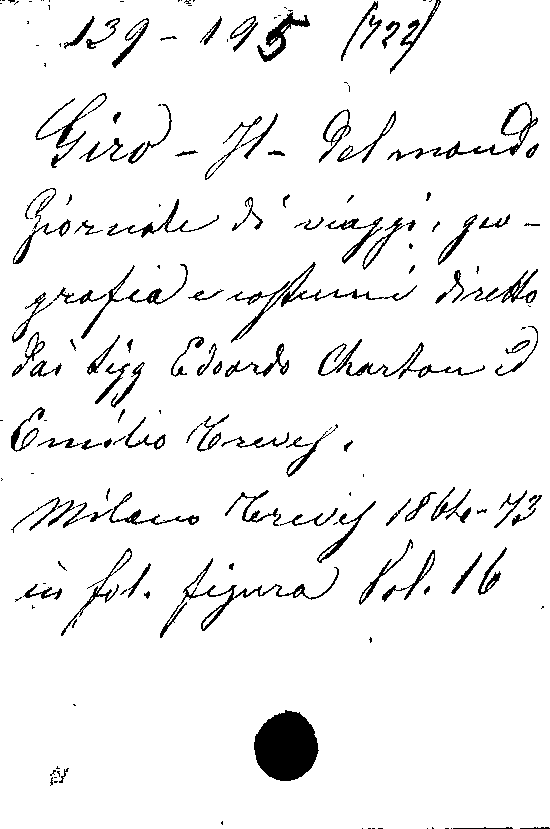 139 - 195 (722)
Giro - Il - Del mondo
Giornale di viaggi, geo-
grafia e costumi diretto
dai sigg Edoardo Charton ed
Emilio Treves.
Milano Treves 1864-73
in fol. figura Vol. 16